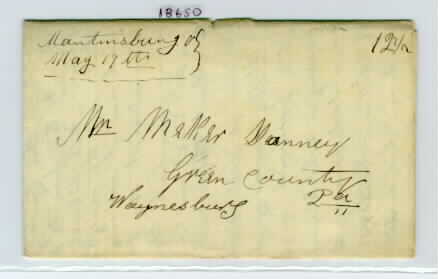 18650
Martinsburg O
May 19th
12 1/2
Mr Meker Danney
Green County
Waynesburg Pa